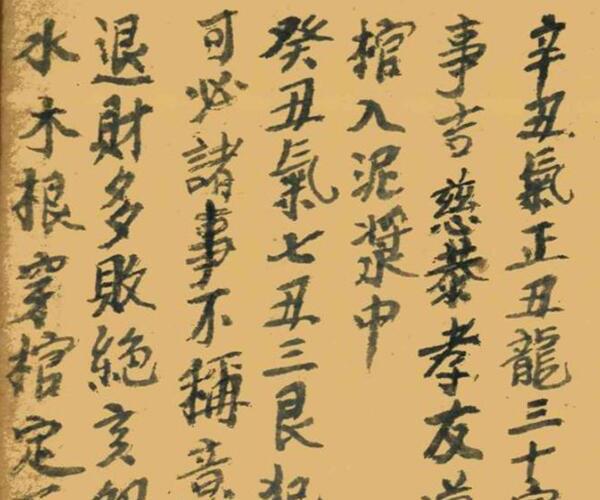 辛丑氣正丑龍三十
事吉慈恭孝友
棺入泥漿中
癸丑氣七丑三艮
可必諸事不稱意
退財多敗絕亥
水木根穿棺定